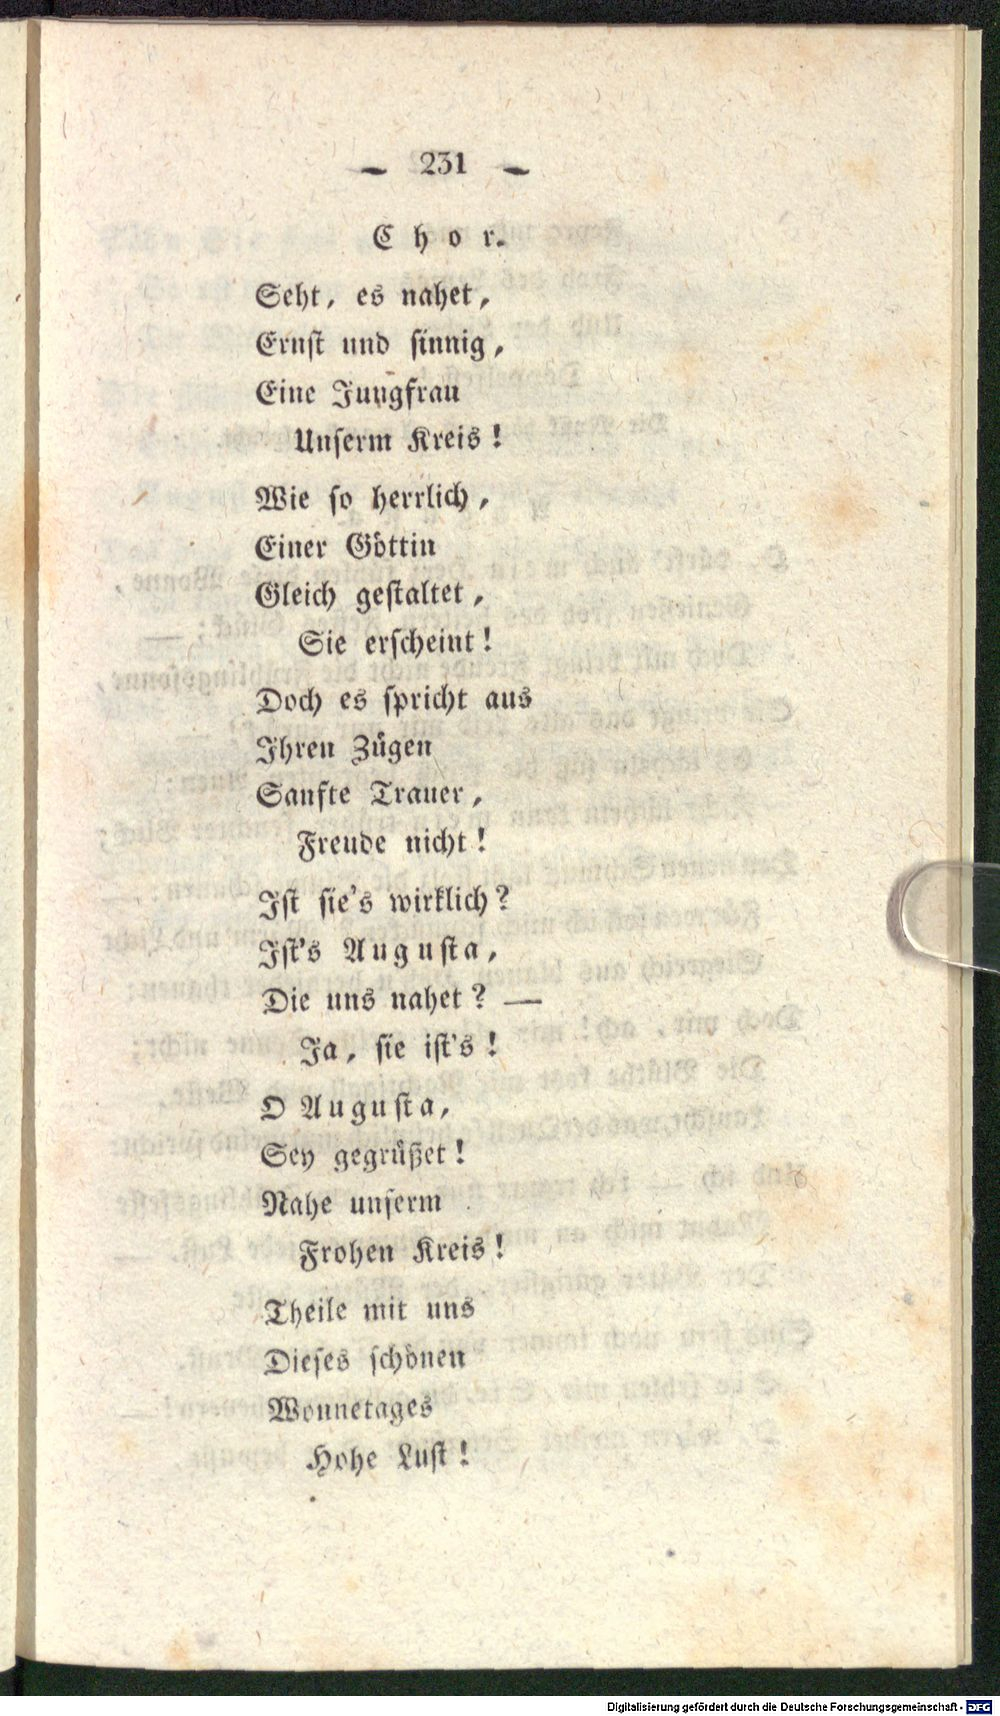 — 231 —
Chor.
Seht, es nahet,
Ernst und sinnig,
Eine Jungfrau
Unserm Kreis!
Wie so herrlich,
Einer Göttin
Gleich gestaltet,
Sie erscheint!
Doch es spricht aus
Ihren Zügen
Sanfte Trauer,
Freude nicht!
Ist sie's wirklich?
Ist's Augusta,
Die uns nahet? —
Ja, sie ist's!
O Augusta,
Sey gegrüßet!
Nahe unserm
Frohen Kreis!
Theile mit uns
Dieses schönen
Wonnetages
Hohe Lust!
Digitalisierung gefördert durch die Deutsche Forschungsgemeinschaft - DFG